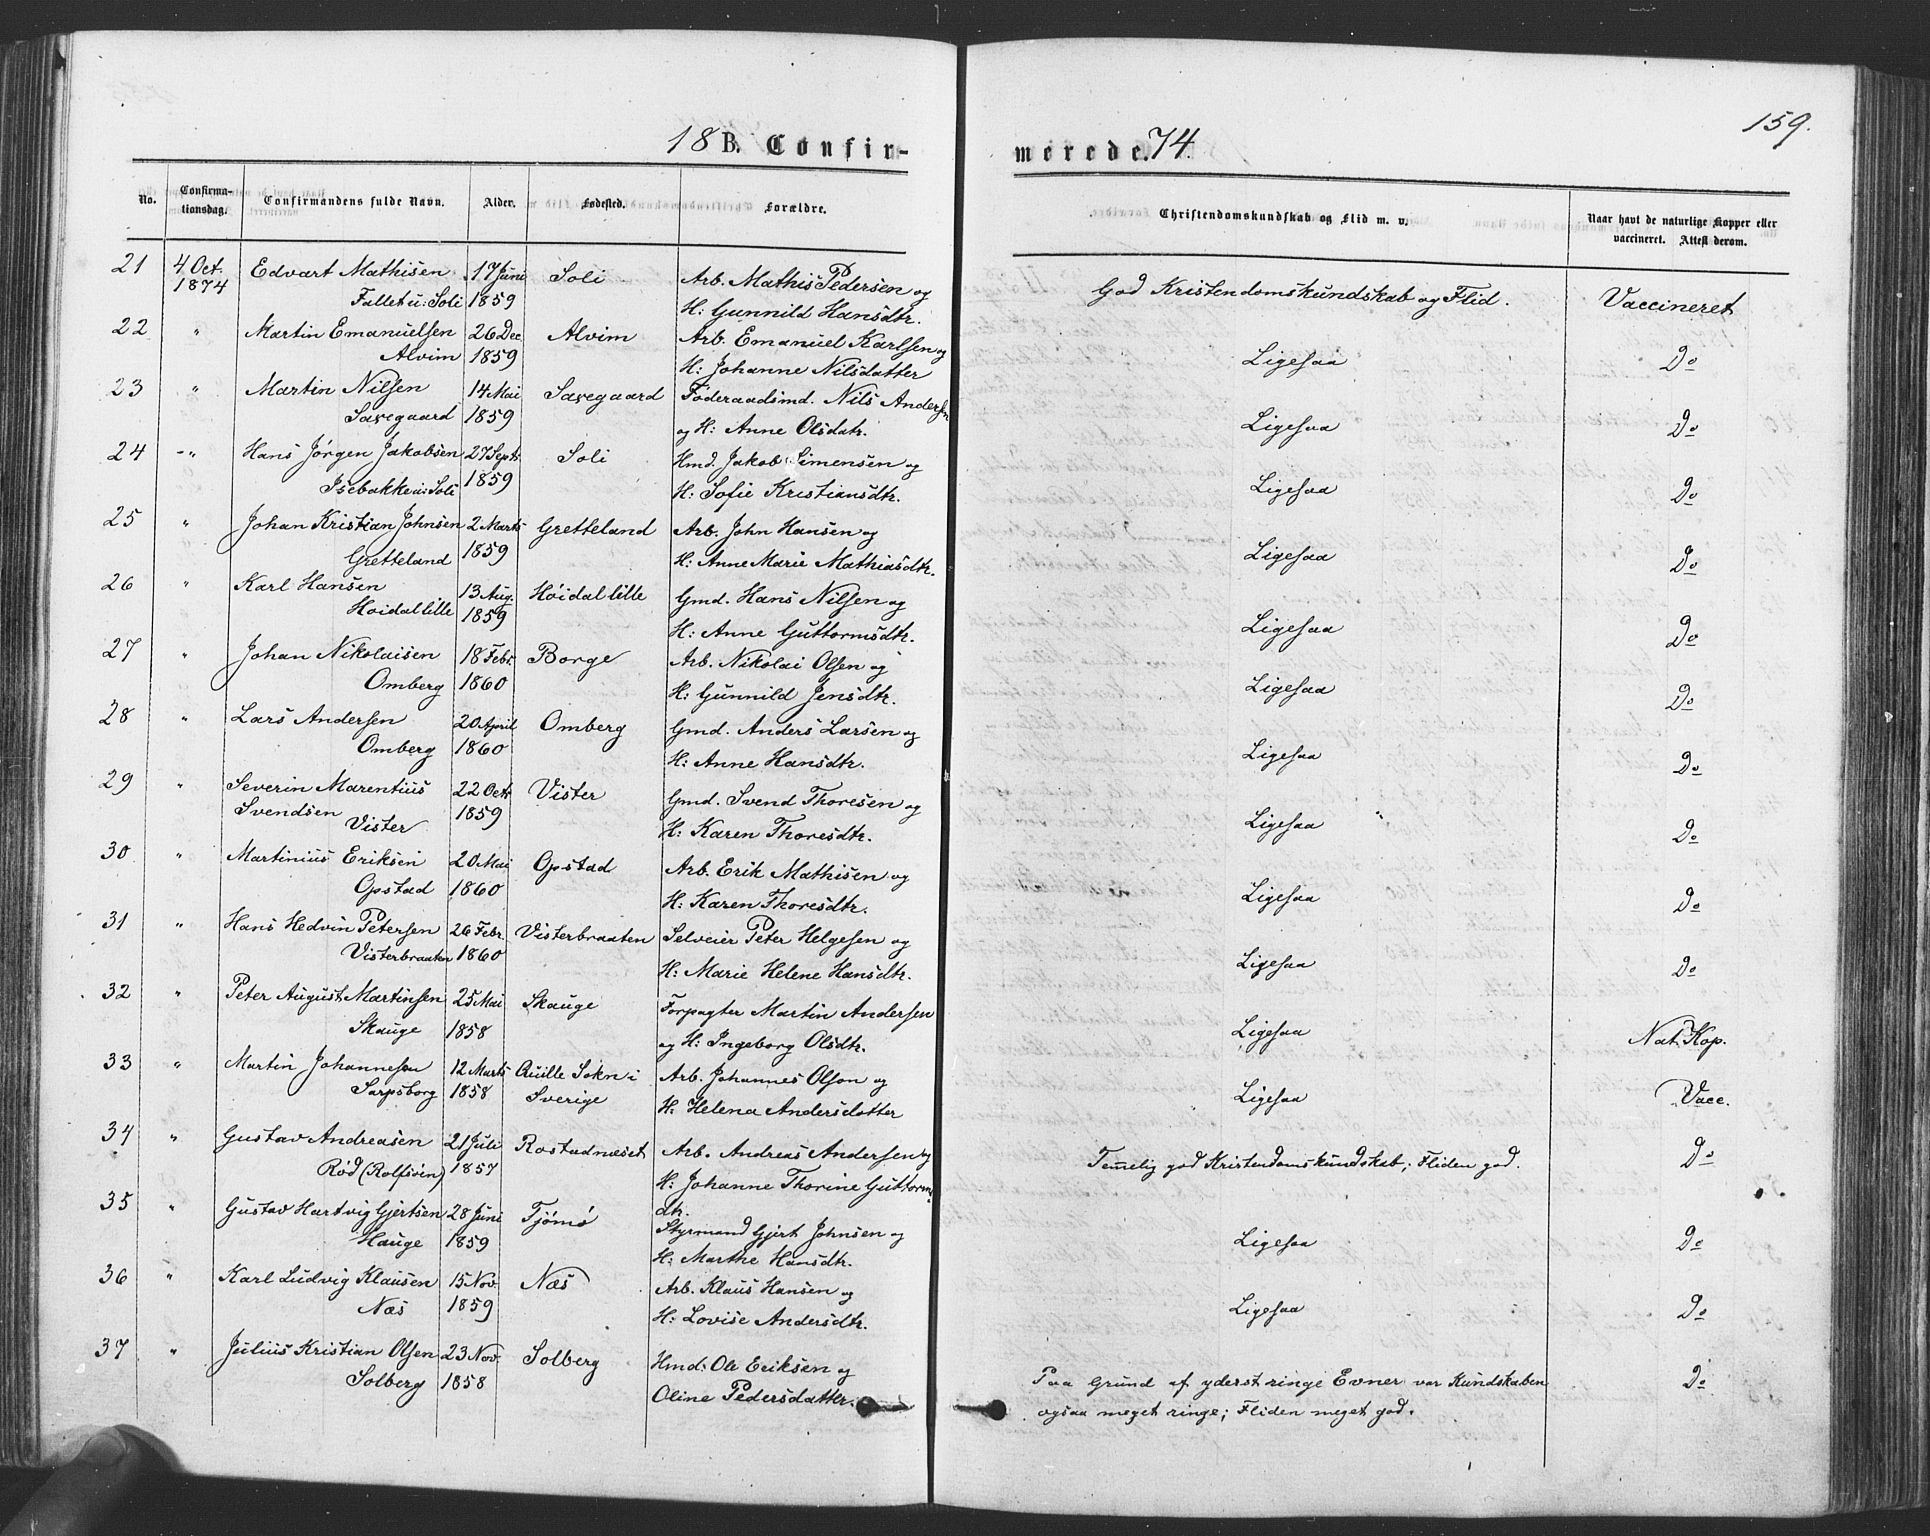 159.
18 B. Confir-
merede. 74.
No.
Confirma-
tionsdag.
Confirmandens fulde Navn.
Alder.
Fødested.
Forældre.
Christendomskundskab og Flid m. v.
Naar havt de naturlige Kopper eller
vaccineret. Attest derom.
21 4 Oct. Edvart Mathisen 17 Juni Soli Arb. Mathis Pedersen og God Kristendomskundskab og Flid. Vaccineret
1874 Fallet u: Soli 1859 H: Gunnild Hansdtr.
22 " Martin Emanuelsen 26 Dec Alvim Arb. Emanuel Karlsen og Ligesaa Do
Alvim 1859 H: Johanne Nilsdatter
23 " Martin Nilsen 14 Mai Saxegaard Föderaadsmd. Nils Andersen Ligesaa Do
Saxegaard 1859 og H: Anne Olsdatr.
24 -" Hans Jørgen Jakobsen 27 Septr. Soli Hmd. Jakob Simensen og Ligesaa Do
Isebakke u: Soli 1859 H: Sofie Kristiansdtr.
25 " Johan Kristian Johnsen 2 Marts Gretteland Arb. John Hansen og Ligesaa Do
Gretteland 1859 H: Anne Marie Mathiasdtr.
26 " Karl Hansen 13 Aug. Høidal lille Gmd. Hans Nilsen og Ligesaa Do
Hoidal lille 1859 H: Anne Guttormsdtr.
27 " Johan Nikolaisen 18 Febr. Borge Arb. Nikolai Olsen og Ligesaa Do
Omberg 1860 H: Gunnild Jensdtr.
28 " Lars Andersen 20 April Omberg Gmd. Anders Larsen og Ligesaa Do
Omberg 1860 H: Anne Hansdtr.
29 " Severin Marentius 22 Octr Vister Gmd. Svend Thoresen og Ligesaa " Do
Svendsen Vister 1859 H: Karen Thoresdtr.
30 " Martinius Eriksen 20 Mai Opstad Arb. Erik Mathisen og Ligesaa Do
Opstad 1860 H: Karen Thoresdtr.
31 " Hans Hedvin Petersen 26 Febr. Visterbraaten Selveier Peter Helgesen og Ligesaa Do
Visterbraaten 1860 H: Marie Helene Hansdtr.
32 " Peter August Martinsen 25 Mai Skauge Forpagter Martin Andersen Ligesaa Nat. Kop.
Skauge 1858 og H: Ingeborg Olsdtr.
33 " Martin Johannesen 12 Marts Quille Sokn i Arb. Johannes Olson og Ligesaa Vacc.
Sarpsborg 1858 Sverige H: Helena Andersdotter
34 " Gustav Andreasen 21 Juli Rostadnæset Arb. Andreas Andersen og Temelig god Kristendomskundskab; Fliden god. Do
Rød (Rolfsöen) 1857 H: Johanne Thorine Guttorms
dtr.
35 " Gustav Hartvig Gjertsen 28 Juni Tjømø Styrmand Gjert Johnsen og Ligesaa Do
Hauge 1859 H: Marthe Hansdtr.
36 " Karl Ludvig Klausen 15 Nov. Næs Arb. Klaus Hansen og Ligesaa Do
Næs 1859 H: Lovise Andersdtr.
37 " Julius Kristian Olsen 23 Nov. Solberg Hmd: Ole Eriksen og Paa Grund af yderst ringe Evner var Kundskaben Do
Solberg 1858 Oline Pedersdatter. ogsaa meget ringe; Fliden meget god.